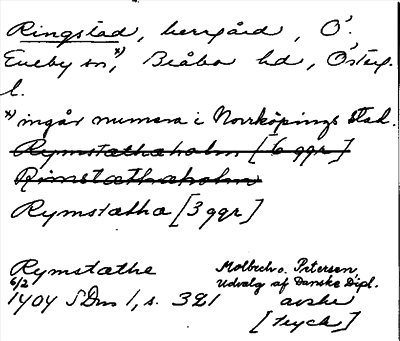 Ringstad, herrgård, Ö.
Eneby sn x), Bråbo hd, Östergl.
l.
x) ingår numera i Norrköpings stad.
Rymstathaholm [6 ggr]
Rimstathaholm
Rymstatha [3 ggr]
Rymstathe
6/2
1404 SDns 1, s. 321
Molbech o. Petersen,
Udvalg af Danske Dipl.
avskr
[tryck]